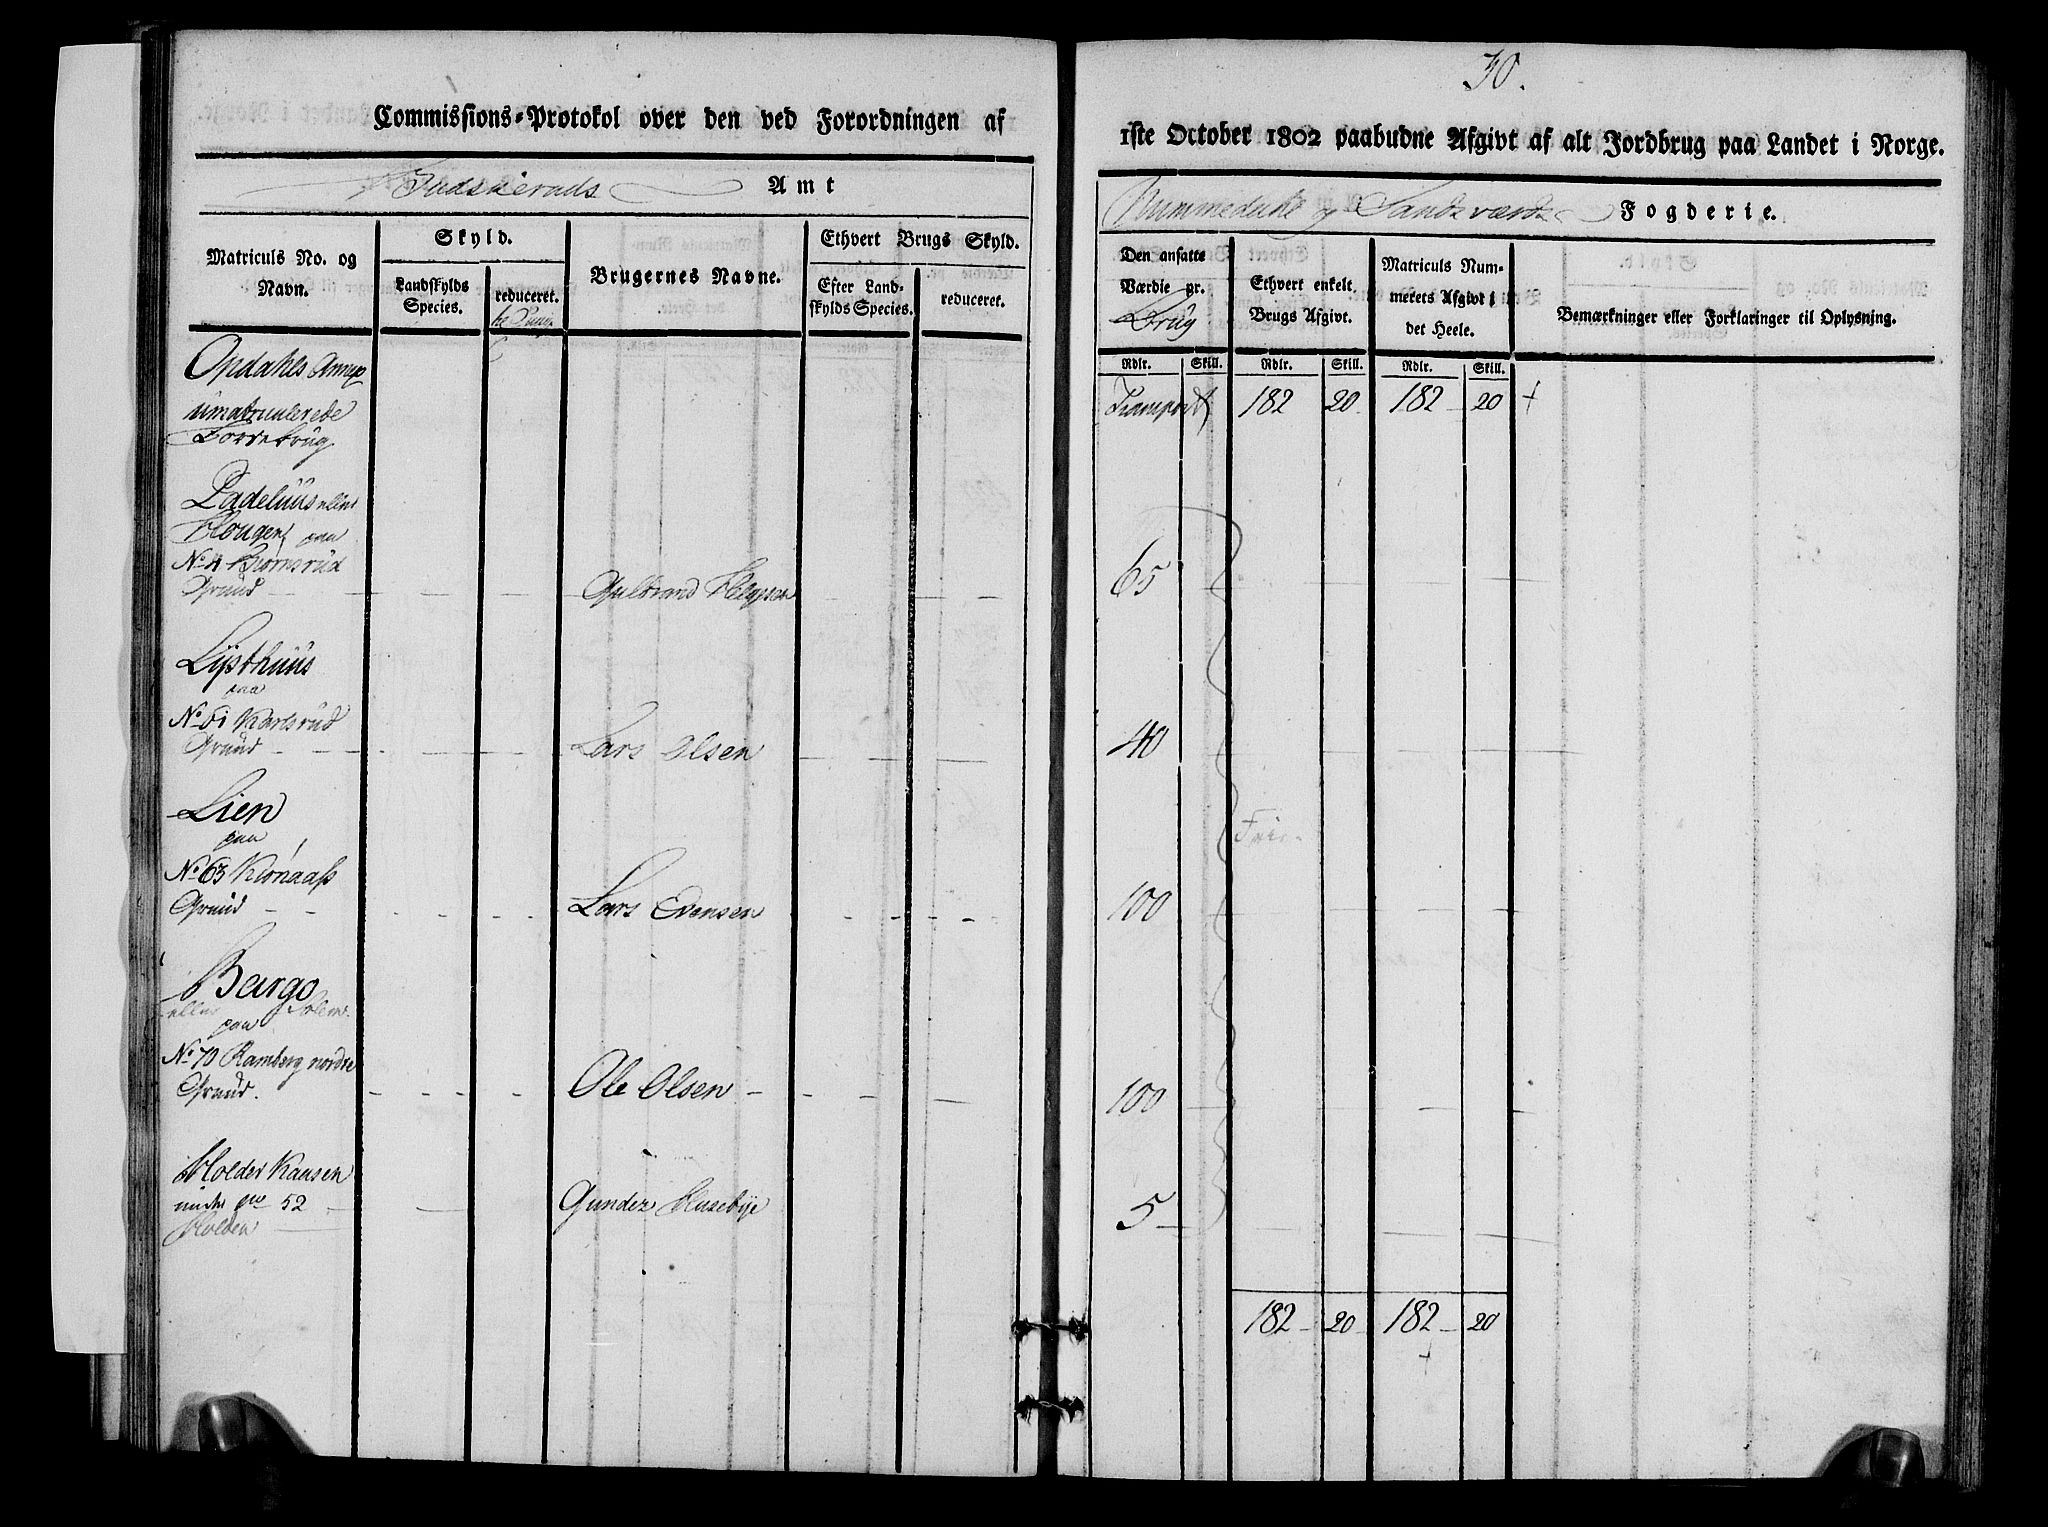 30.
Commissions-Protokol over den ved Forordningen af
1ste October 1802 paabudne Afgivt af alt Jordbrug paa Landet i Norge.
Budskeruds Amt
Nummedahl og Sandsværds Fogderie.
Matriculs No. og Navn.
Skyld.
Landskylds Species.
reduceret.
Brugernes Navne.
Ethvert Brugs Skyld.
Efter Land-skylds Species.
reduceret.
Den ansatte Værdie pr. Brug
Ethvert enkelt Brugs Afgivt.
Matriculs Num-merets Afgivt i det Heele.
Bemærkninger eller Forklaringer til Oplysning.
Rdlr. Skill. Rdlr. Skill. Rdlr. Skill.
Opdahls Annex
umatriculerede
Transport 182 20 182 20
eller
Hougen paa
No 4 Biørnsrud
Grund Guldbrand Helgesen 65
Lysthuus
paa
No 61 Karlsrud
Grund Lars Olsen 40
Lien
paa
No 63
Grund Lars Evensen 100
eller
paa
No 70 Ramberg nordre
Grund. Ole Olsen 100
52 Gunder Husebye 5
Holden
182 20 182 20